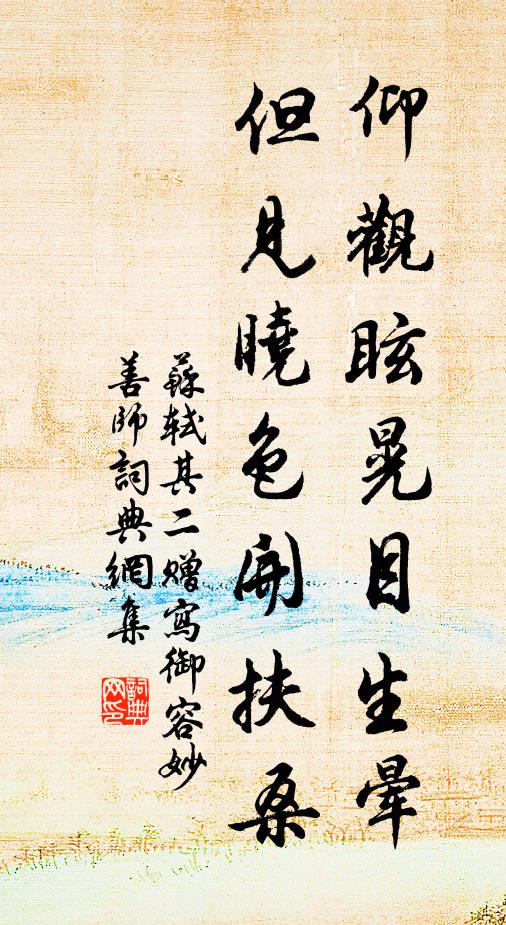 仰觀眩晃目生暈
但見曉色開扶桑
蘇軾其二贈寫御容妙
善師詞典網集
詞典
网印